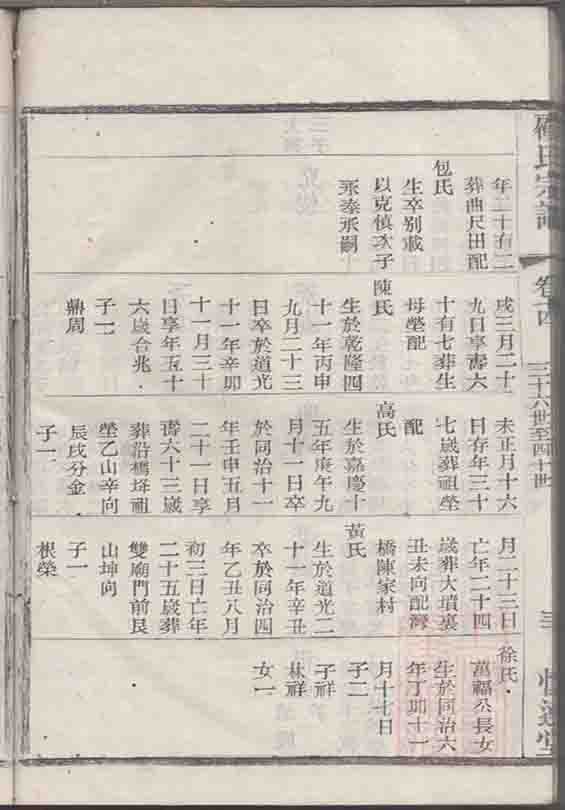 氏宗譜
卷十四
三十六世至四十世
三
堂
年二十有二
葬曲尺田配
包氏
生卒别載
以克慎次子
永奉承嗣
戌三月二十
九日享壽六
十有七葬生
母塋配
陳氏
生於乾隆四
十一年丙申
九月二十三
日卒於道光
十一年辛卯
十一月三十
日享年五十
六歲合兆
子一
鼎周
未正月十六
日存年三十
七歲葬祖塋
配
高氏
生於嘉慶十
五年庚午九
月十一日卒
於同治十一
年壬申五月
二十一日享
壽六十三歲
葬沿橋垰祖
塋乙山辛向
辰戌分金
子一
月二十三日
亡年二十四
歲葬大墳裏
丑未向配灣
橋陳家村
黃氏
生於道光二
十一年辛丑
卒於同治四
年乙丑八月
初三日亡年
二十五歲葬
雙廟門前艮
山坤向
子一
根榮
徐氏
萬福公長女
生於同治六
年丁卯十一
月十七日
子二
子祥
林祥
女一